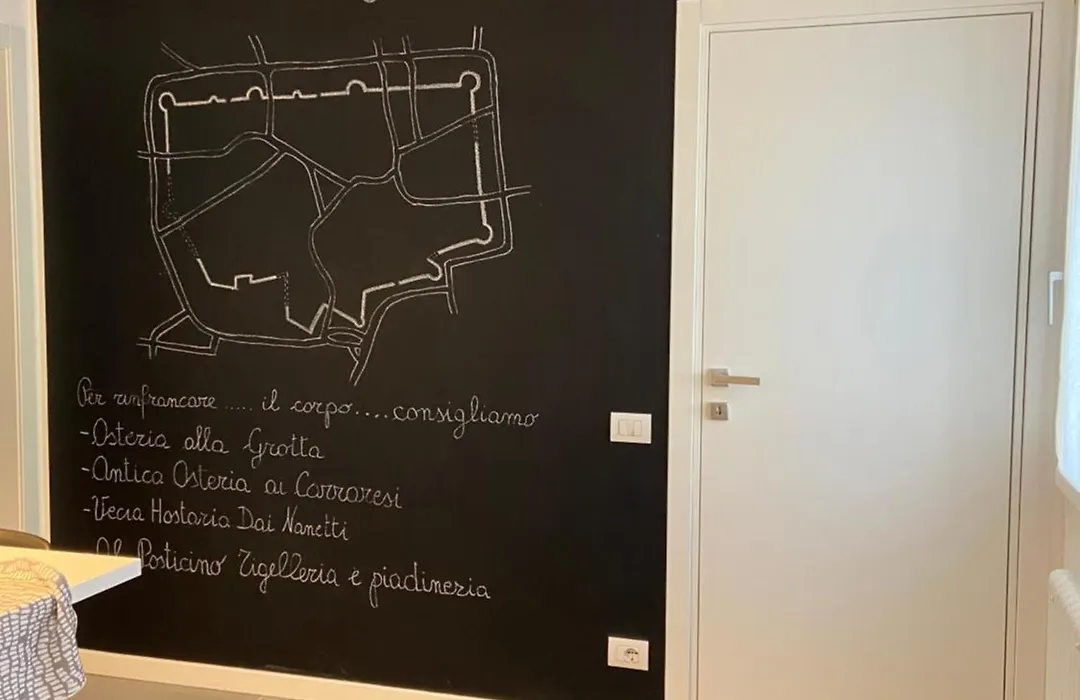 Per rinfrancare ..... il corpo.... consigliamo
-Osteria alla Grotta
-Antica Osteria ai Carraresi
-Vecia Hostaria Dai Nanetti
-Al Posticino Tigelleria e piadineria